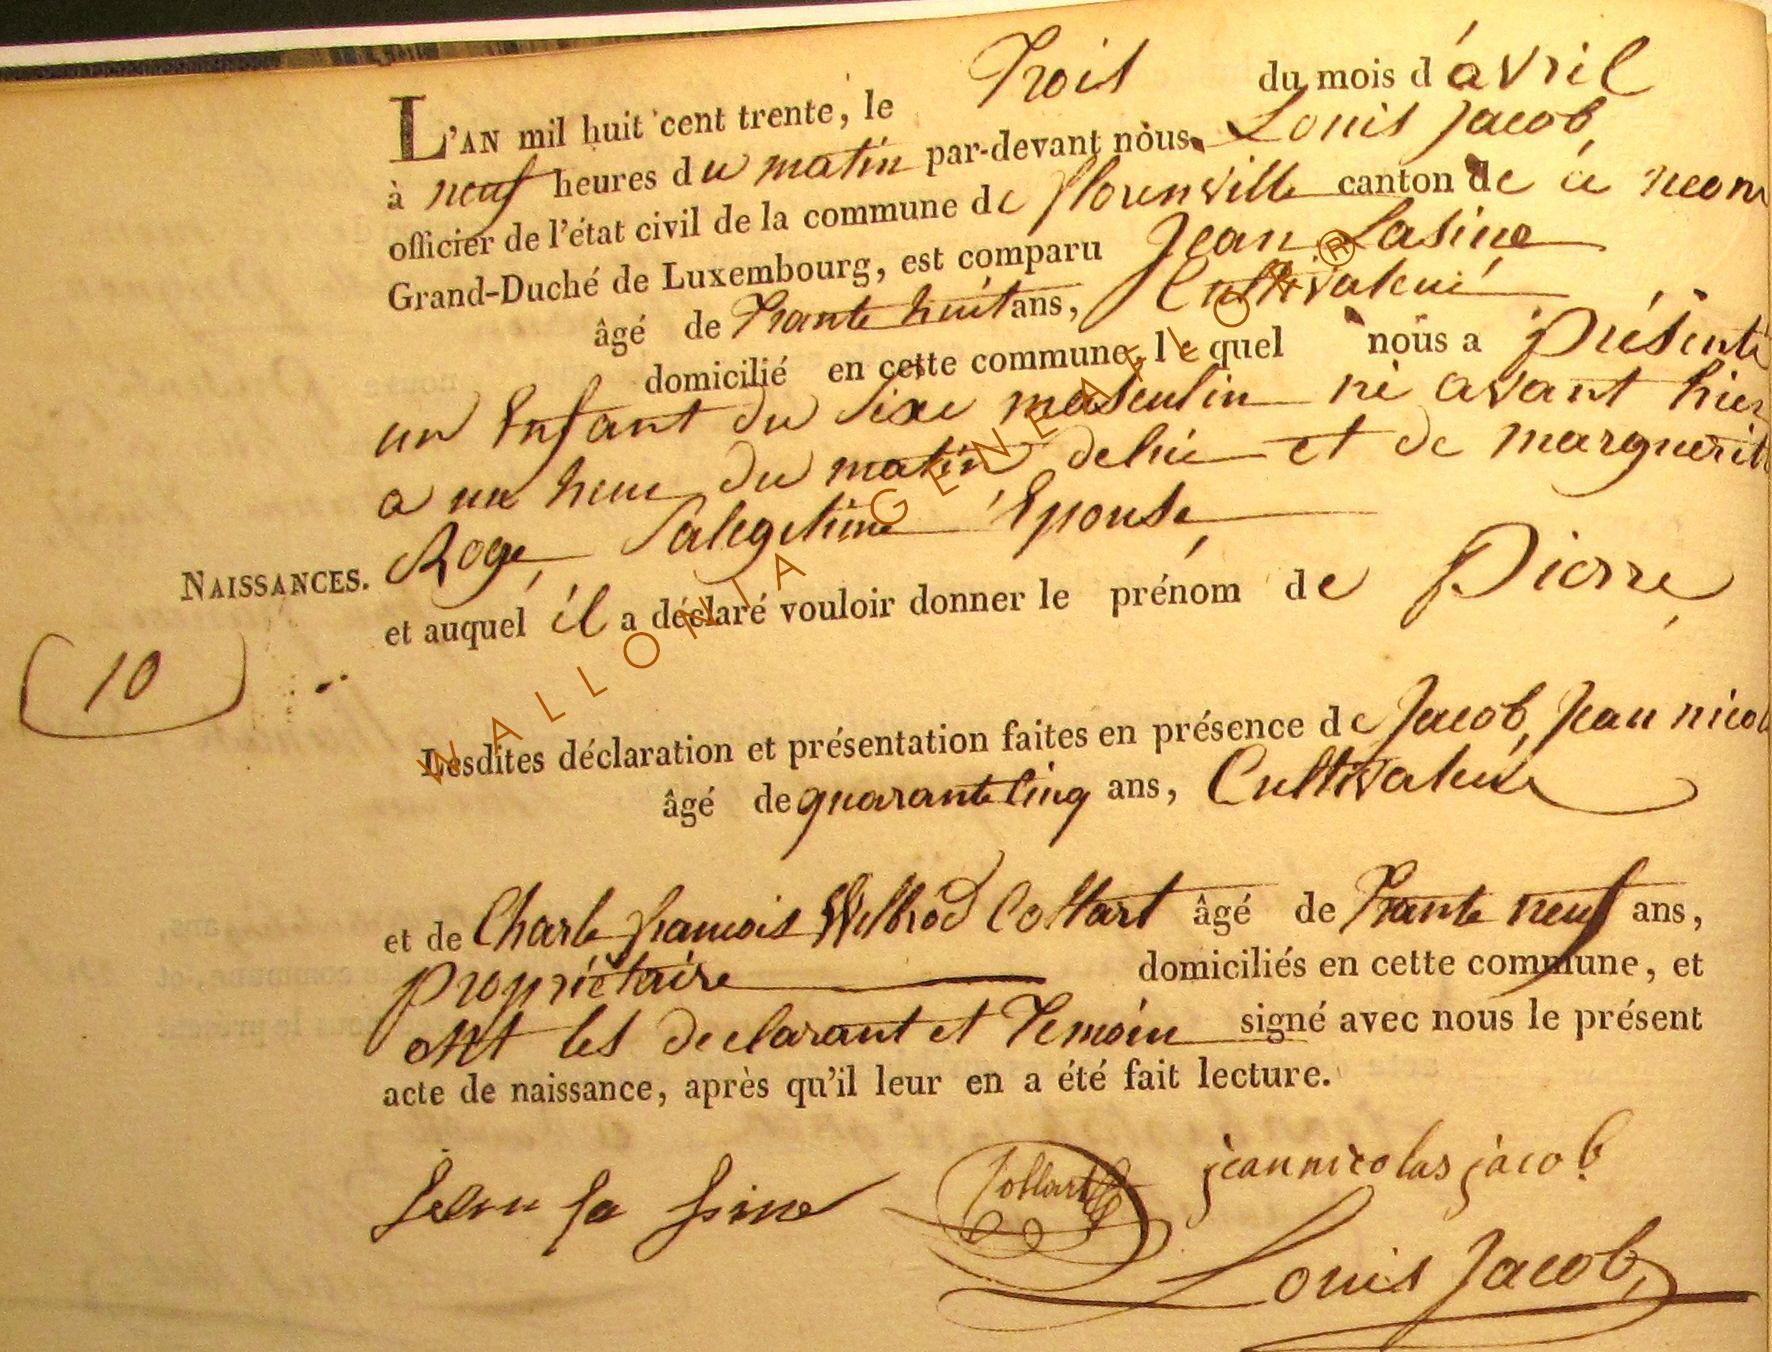 L'AN mil huit cent trente, le Trois du mois d'avril
à neuf heures du matin par-devant nous Louis Jacob,
officier de l'état civil de la commune de florenville canton de
Grand-Duché de Luxembourg, est comparu Jean Lasine
âgé de Trante huit ans, Cultivateur
domicilié en cette commune, lequel nous a présenté
un Enfant du sexe masculin né avant hier
a un heur du matin de lui et de marguerit
Roge, Salegitime Epouse,
NAISSANCES.
et auquel il a déclaré vouloir donner le prénom de Pierre
(10)
Lesdites déclaration et présentation faites en présence de Jacob, Jean nicol
âgé de quarante Cinq ans, Cultivateur
et de Charle francois Wilbrod Collart âgé de Trante neuf ans,
propriétaire domiciliés en cette commune, et
ont les declarant et Temoin signé avec nous le présent
acte de naissance, après qu'il leur en a été fait lecture.
Jean la sine Collart jean nicolas jacob
Louis Jacob,
WALLONIA GENEAFLOR ®